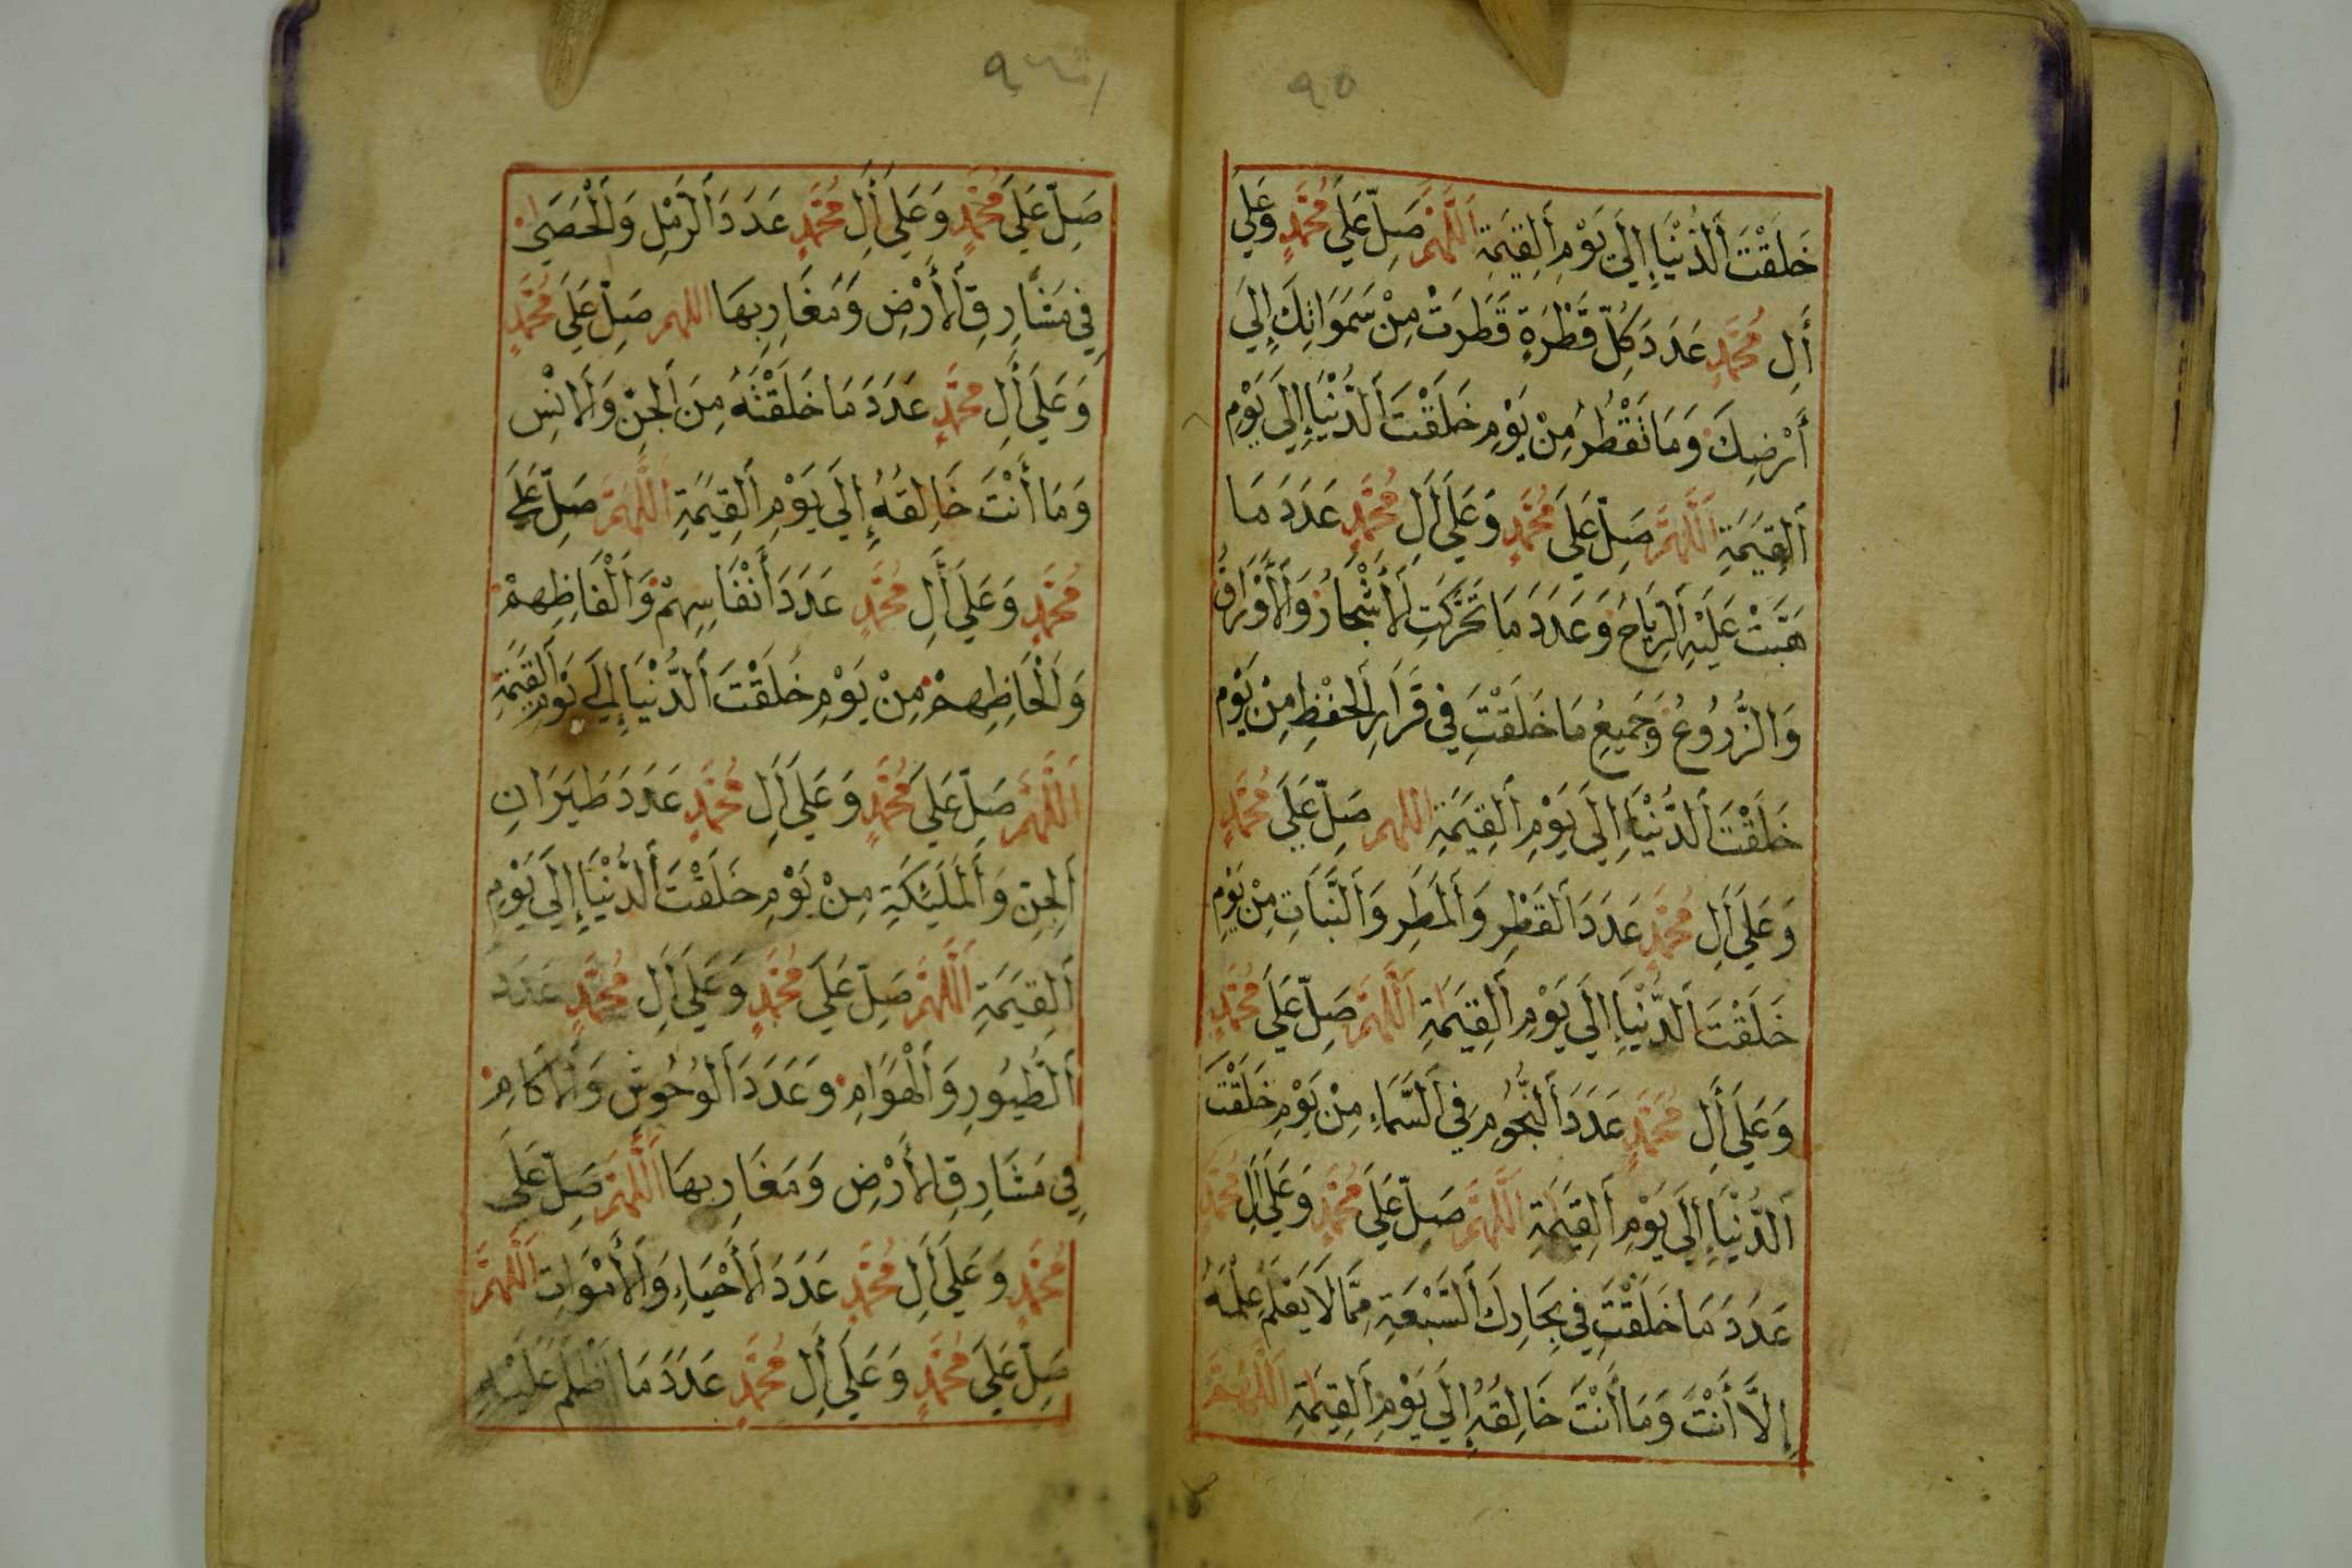 ٩٥
خَلَقْتَ اَلدُّنْيَا إِلَى يَوْمِ اَلْقِيَمَةِ اَللَّهُمَّ صَلِّ عَلَى مُحَمَّدٍ وَعَلَى
أَلِ مُحَمَّدٍ عَدَدَ كُلِّ قَطْرَةٍ قَطَرَتْ مِنْ سَمَوَاتِكَ إِلَى
أَرْضِكَ وَمَا تَقْطُرُ مِنْ يَوْمِ خَلَقْتَ اَلدُّنْيَا إِلَى يَوْمِ
اَلْقِيَمَةِ اَللَّهُمَّ صَلِّ عَلَى مُحَمَّدٍ وَعَلَى أَلِ مُحَمَّدٍ عَدَدَ مَا
هَبَّتْ عَلَيْهِ اَلرِّيَاحُ وَعَدَدَ مَا تَحَرَّكَتِ اَلْأَشْجَارُ وَالْأَوْرَاقُ
وَالزُّرُوعُ وَجَمِيعِ مَا خَلَقْتَ فِي قَرَارِ اَلْحِفْظِ مِنْ يَوْمِ
خَلَقْتَ اَلدُّنْيَا إِلَى يَوْمِ اَلْقِيَمَةِ اللهم صَلِّ عَلَى مُحَمَّدٍ
وَعَلَى أَلِ مُحَمَّدٍ عَدَدَ اَلْقَطْرِ وَاَلْمَطَرِ وَاَلنَّبَاتِ مِنْ يَوْمِ
خَلَقْتَ اَلدُّنْيَا إِلَى يَوْمِ اَلْقِيَمَةِ اَللَّهُمَّ صَلِّ عَلَى مُحَمَّدٍ
وَعَلَى أَلِ مُحَمَّدٍ عَدَدَ اَلنُّجُومِ فِي اَلسَّمَاءِ مِنْ يَوْمِ خَلَقْتَ
اَلدُّنْيَا إِلَى يَوْمِ اَلْقِيَمَةِ اَللَّهُمَّ صَلِّ عَلَى مُحَمَّدٍ وَعَلَى أَلِ مُحَمَّدٍ
عَدَدَ مَا خَلَقْتَ فِي بِحَارِكَ اَلسَّبْعَةِ مِمَّا لَا يَعْلَمُ عِلْمَهُ
إِلَّا أَنْتَ وَمَا أَنْتَ خَالِقُهُ إِلَى يَوْمِ اَلْقِيَمَةِ اَللَّهُمَّ
صَلِّ عَلَى مُحَمَّدٍ وَعَلَى أَلِ مُحَمَّدٍ عَدَدَ اَلرَّمْلِ وَاَلْحَصَى
فِي مَشَارِقِ اَلْأَرْضِ وَمَغَارِبِهَا اللهم صَلِّ عَلَى مُحَمَّدٍ
وَعَلَى أَلِ مُحَمَّدٍ عَدَدَ مَا خَلَقْتَهُ مِنَ اَلْجِنِّ وَالْإِنْسِ
وَمَا أَنْتَ خَالِقُهُ إِلَى يَوْمِ اَلْقِيَمَةِ اَللَّهُمَّ صَلِّ عَلَى
مُحَمَّدٍ وَعَلَى أَلِ مُحَمَّدٍ عَدَدَ أَنْفَاسِهِمْ وَأَلْفَاظِهِمْ
وَأَلْحَاظِهِمْ مِنْ يَوْمِ خَلَقْتَ اَلدُّنْيَا إِلَى يَوْمِ اَلْقِيَمَةِ
اَللَّهُمَّ صَلِّ عَلَى مُحَمَّدٍ وَعَلَى أَلِ مُحَمَّدٍ عَدَدَ طَيَرَانِ
اَلْجِنِّ وَاَلْمَلَئِكَةِ مِنْ يَوْمِ خَلَقْتَ اَلدُّنْيَا إِلَى يَوْمِ
اَلْقِيَمَةِ اَللَّهُمَّ صَلِّ عَلَى مُحَمَّدٍ وَعَلَى أَلِ مُحَمَّدٍ عَدَدَ
اَلطُّيُورِ وَاَلْهَوَامِّ وَعَدَدَ اَلْوُحُوشِ وَالْأَكَامِ
فِي مَشَارِقِ اَلْأَرْضِ وَمَغَارِبِهَا اَللَّهُمَّ صَلِّ عَلَى
مُحَمَّدٍ وَعَلَى أَلِ مُحَمَّدٍ عَدَدَ اَلْأَحْيَاءِ وَاَلْأَمْوَاتِ اَللَّهُمَّ
صَلِّ عَلَى مُحَمَّدٍ وَعَلَى أَلِ مُحَمَّدٍ عَدَدَ مَا أَظْلَمَ عَلَيْهِ